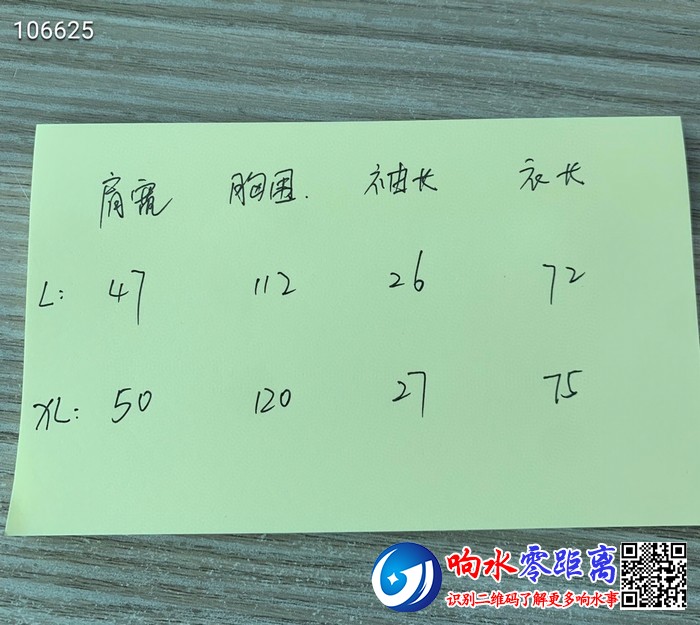 106625
肩宽 胸围. 袖长 衣长
L: 47 112 26 72
XL: 50 120 27 75
响水零距离
识别二维码了解更多响水事